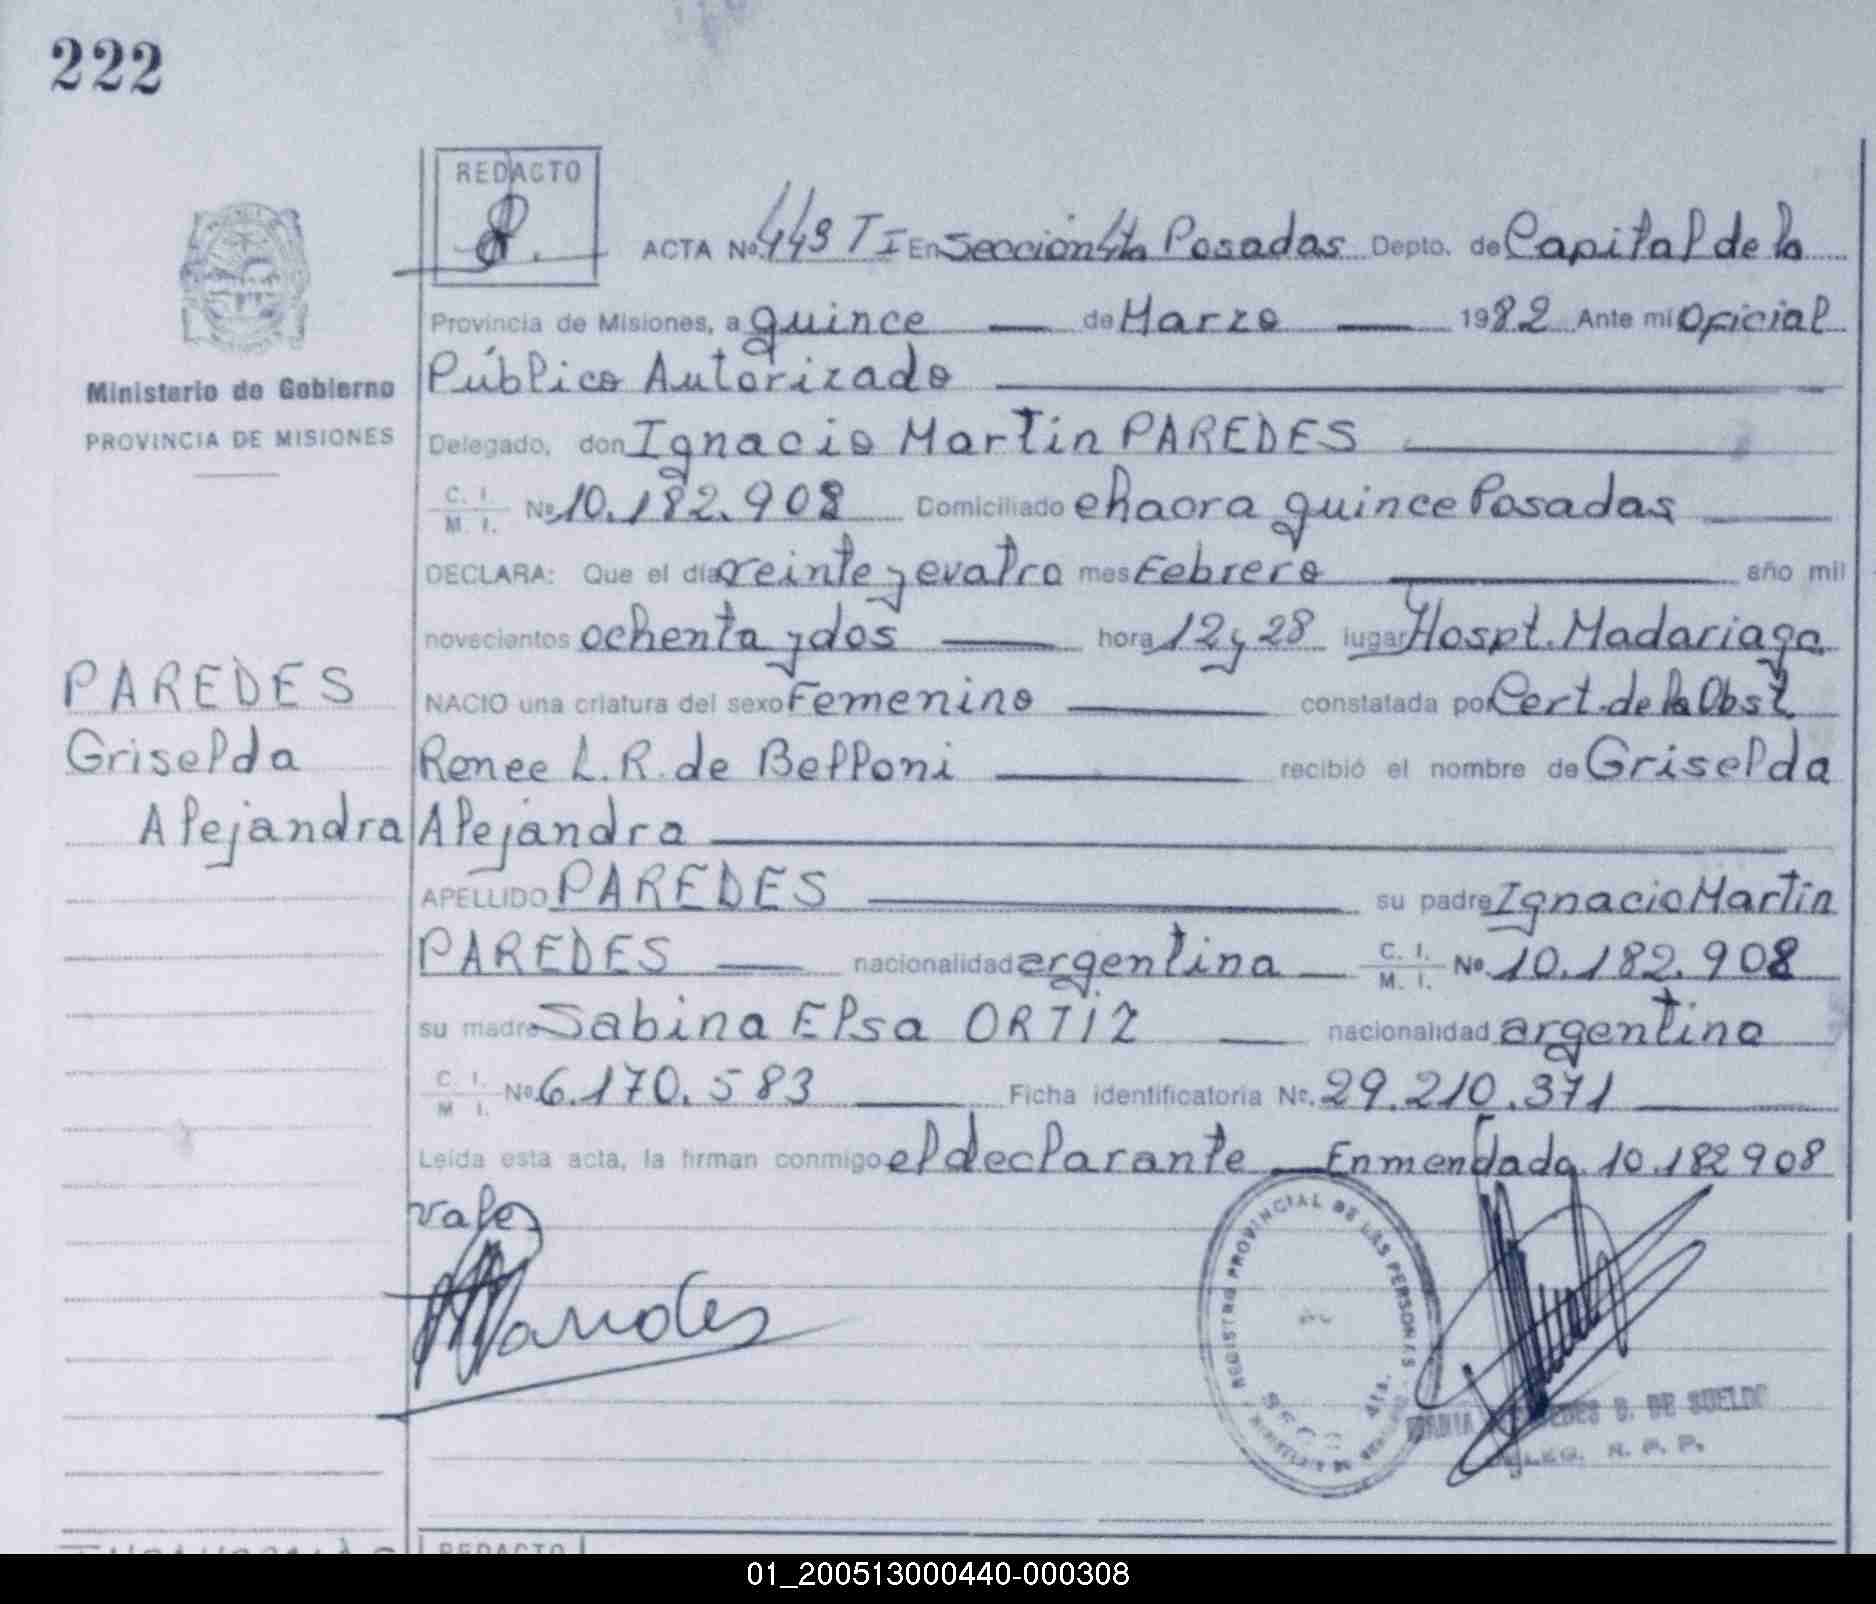 222
REDACTO
ACTA Nº 443 T I En Sección 4ta Posadas Depto. de Capital de la
Provincia de Misiones, a quince de Marzo 1982 Ante mi Oficial
Público Autorizado
Ministerio de Gobierno
PROVINCIA DE MISIONES
Delegado, don Ignacio Martin PAREDES
C. I.
M. I. Nº 10.182.908 Domiciliado chacra quince Posadas
DECLARA: Que el día veinte y cuatro mes Febrero año mil
novecientos ochenta y dos hora 12 y 28 lugar Hospt. Madariaga
NACIO una criatura del sexo Femenino constatada por Cert. de la Obst.
Renee L. R. de Belloni recibió el nombre de Griselda
Alejandra
PAREDES
Griselda
Alejandra
APELLIDO PAREDES su padre Ignacio Martin
PAREDES nacionalidad argentina C. I.
M. I. Nº 10.182.908
su madre Sabina Elsa ORTIZ nacionalidad argentina
C. I.
M I. Nº 6.170.583 Ficha identificatoria Nº. 29.210.371
Leída esta acta, la firman conmigo el declarante Enmendado 10.182908
vale
REGISTRO PROVINCIAL DE LAS PERSONAS
SECC 4ta.
B. DE SUELDO
R. P. P.
REDACTO
01_200513000440-000308